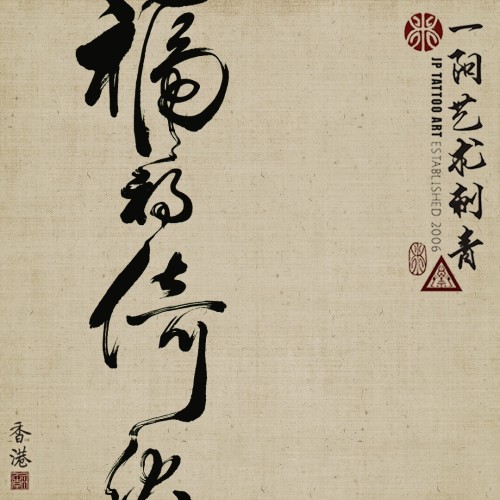 一阳艺术刺青
JP TATTOO ART ESTABLISHED 2006
福祸倚伏
香港